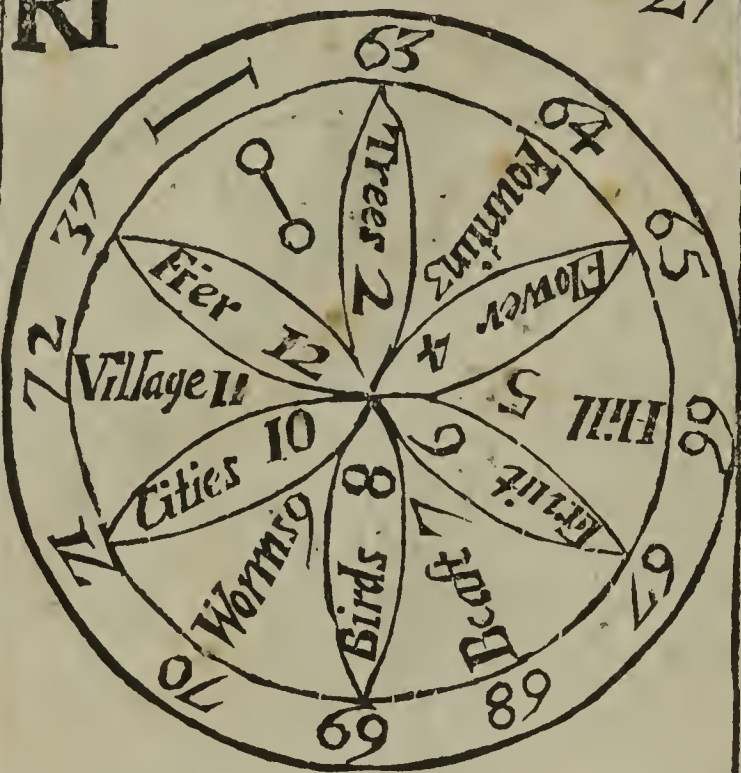 63
64
65
66
67
68
69
70
71
72
37
I
Trees 2
Fountin 3
Flower 4
Hill 5
Fruit 6
Beaſt 7
Birds 8
Worms 9
Cities 10
Village 11
Fier 12